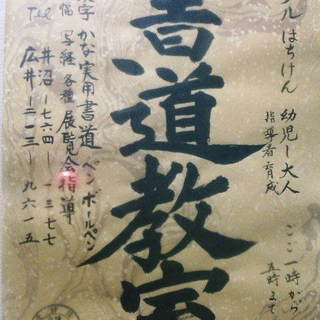 ごご一時から
五時まで
ル はちけん 幼児ー大人
指導者育成
書道教室
かな実用書道 ペン ボールペン
写経 各種 展覧会指導
Tel 井沼ー七六四ー一三七七
広井ー二一三ー九六一五